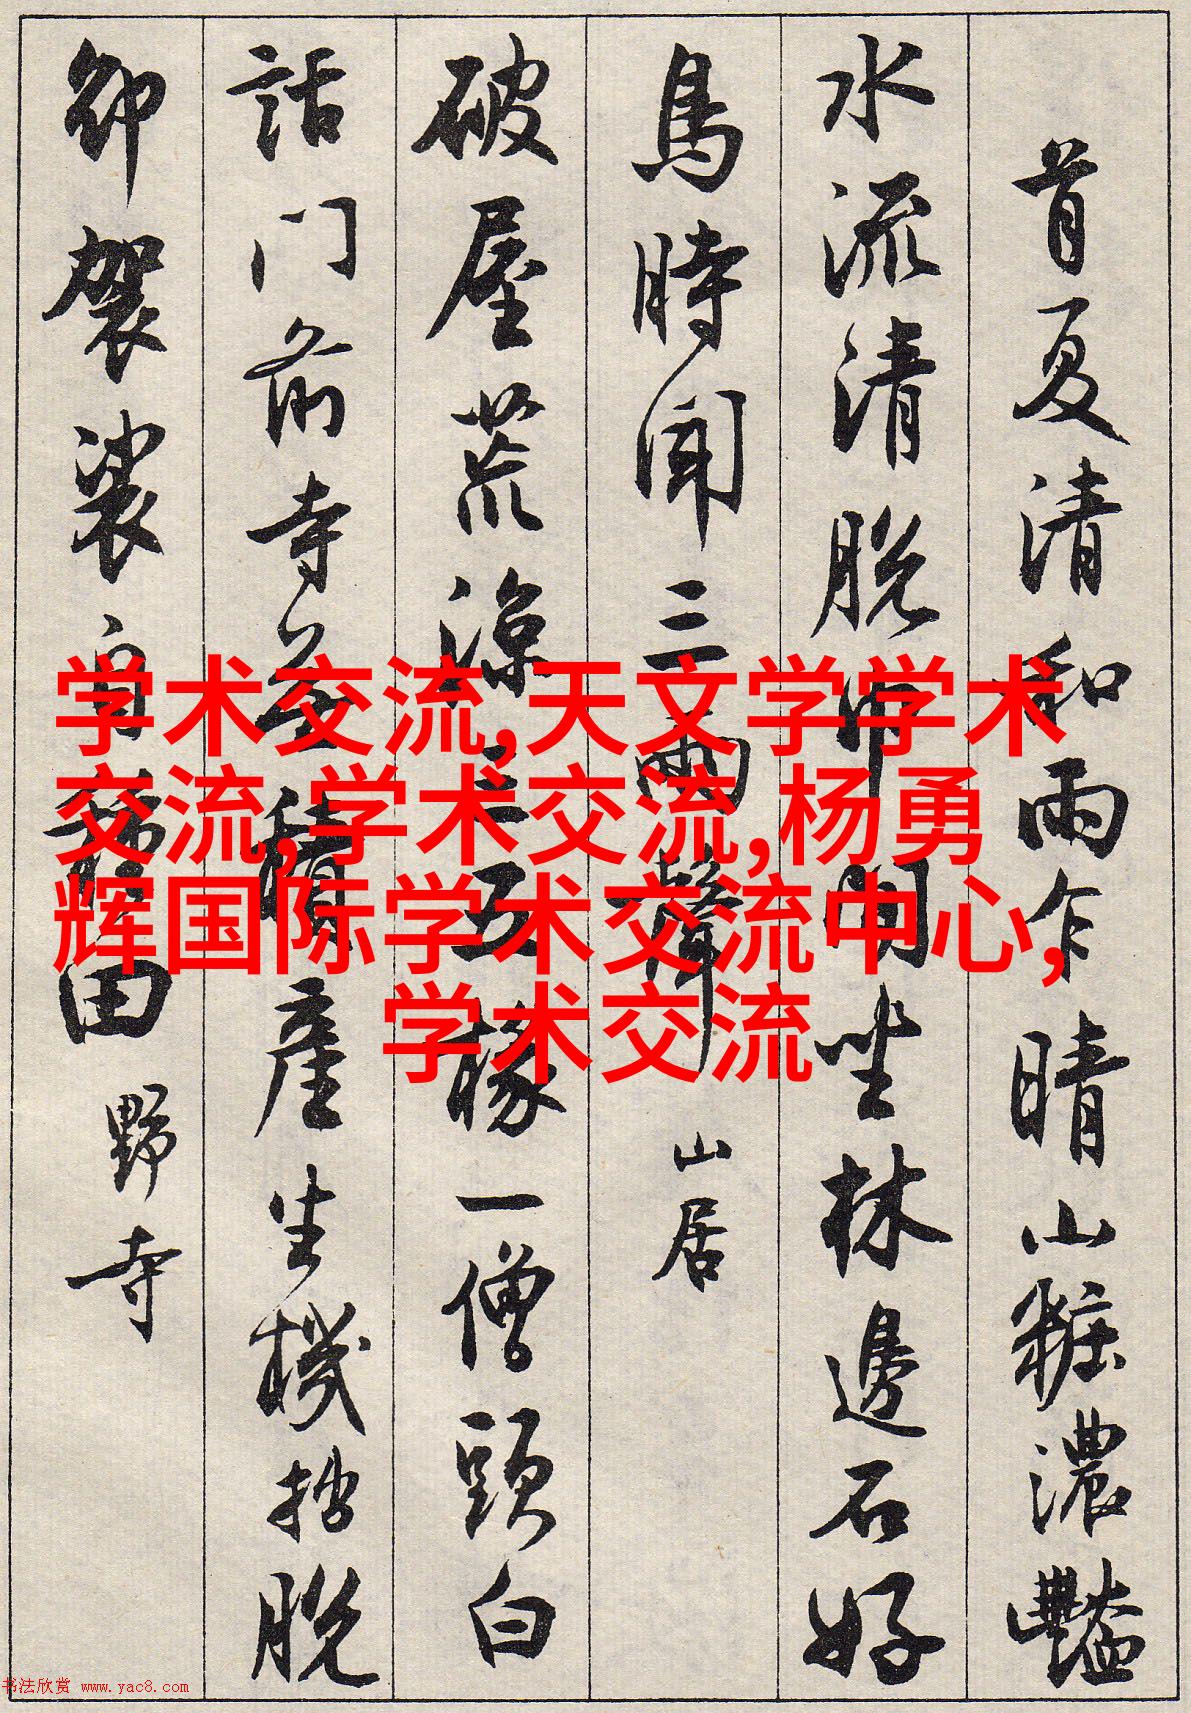 首夏清和雨乍晴山粧濃豔
水流清脱巾坐林邊石好
鳥時聞三兩聲
山居
破屋荒涼三五椽一僧頭白
話门前寺無積產生機拙脱
卻袈裟自種田
野寺
学术交流,天文学学术
交流,学术交流,杨勇
辉国际学术交流中心,
学术交流
书法欣赏 www.yac8.com